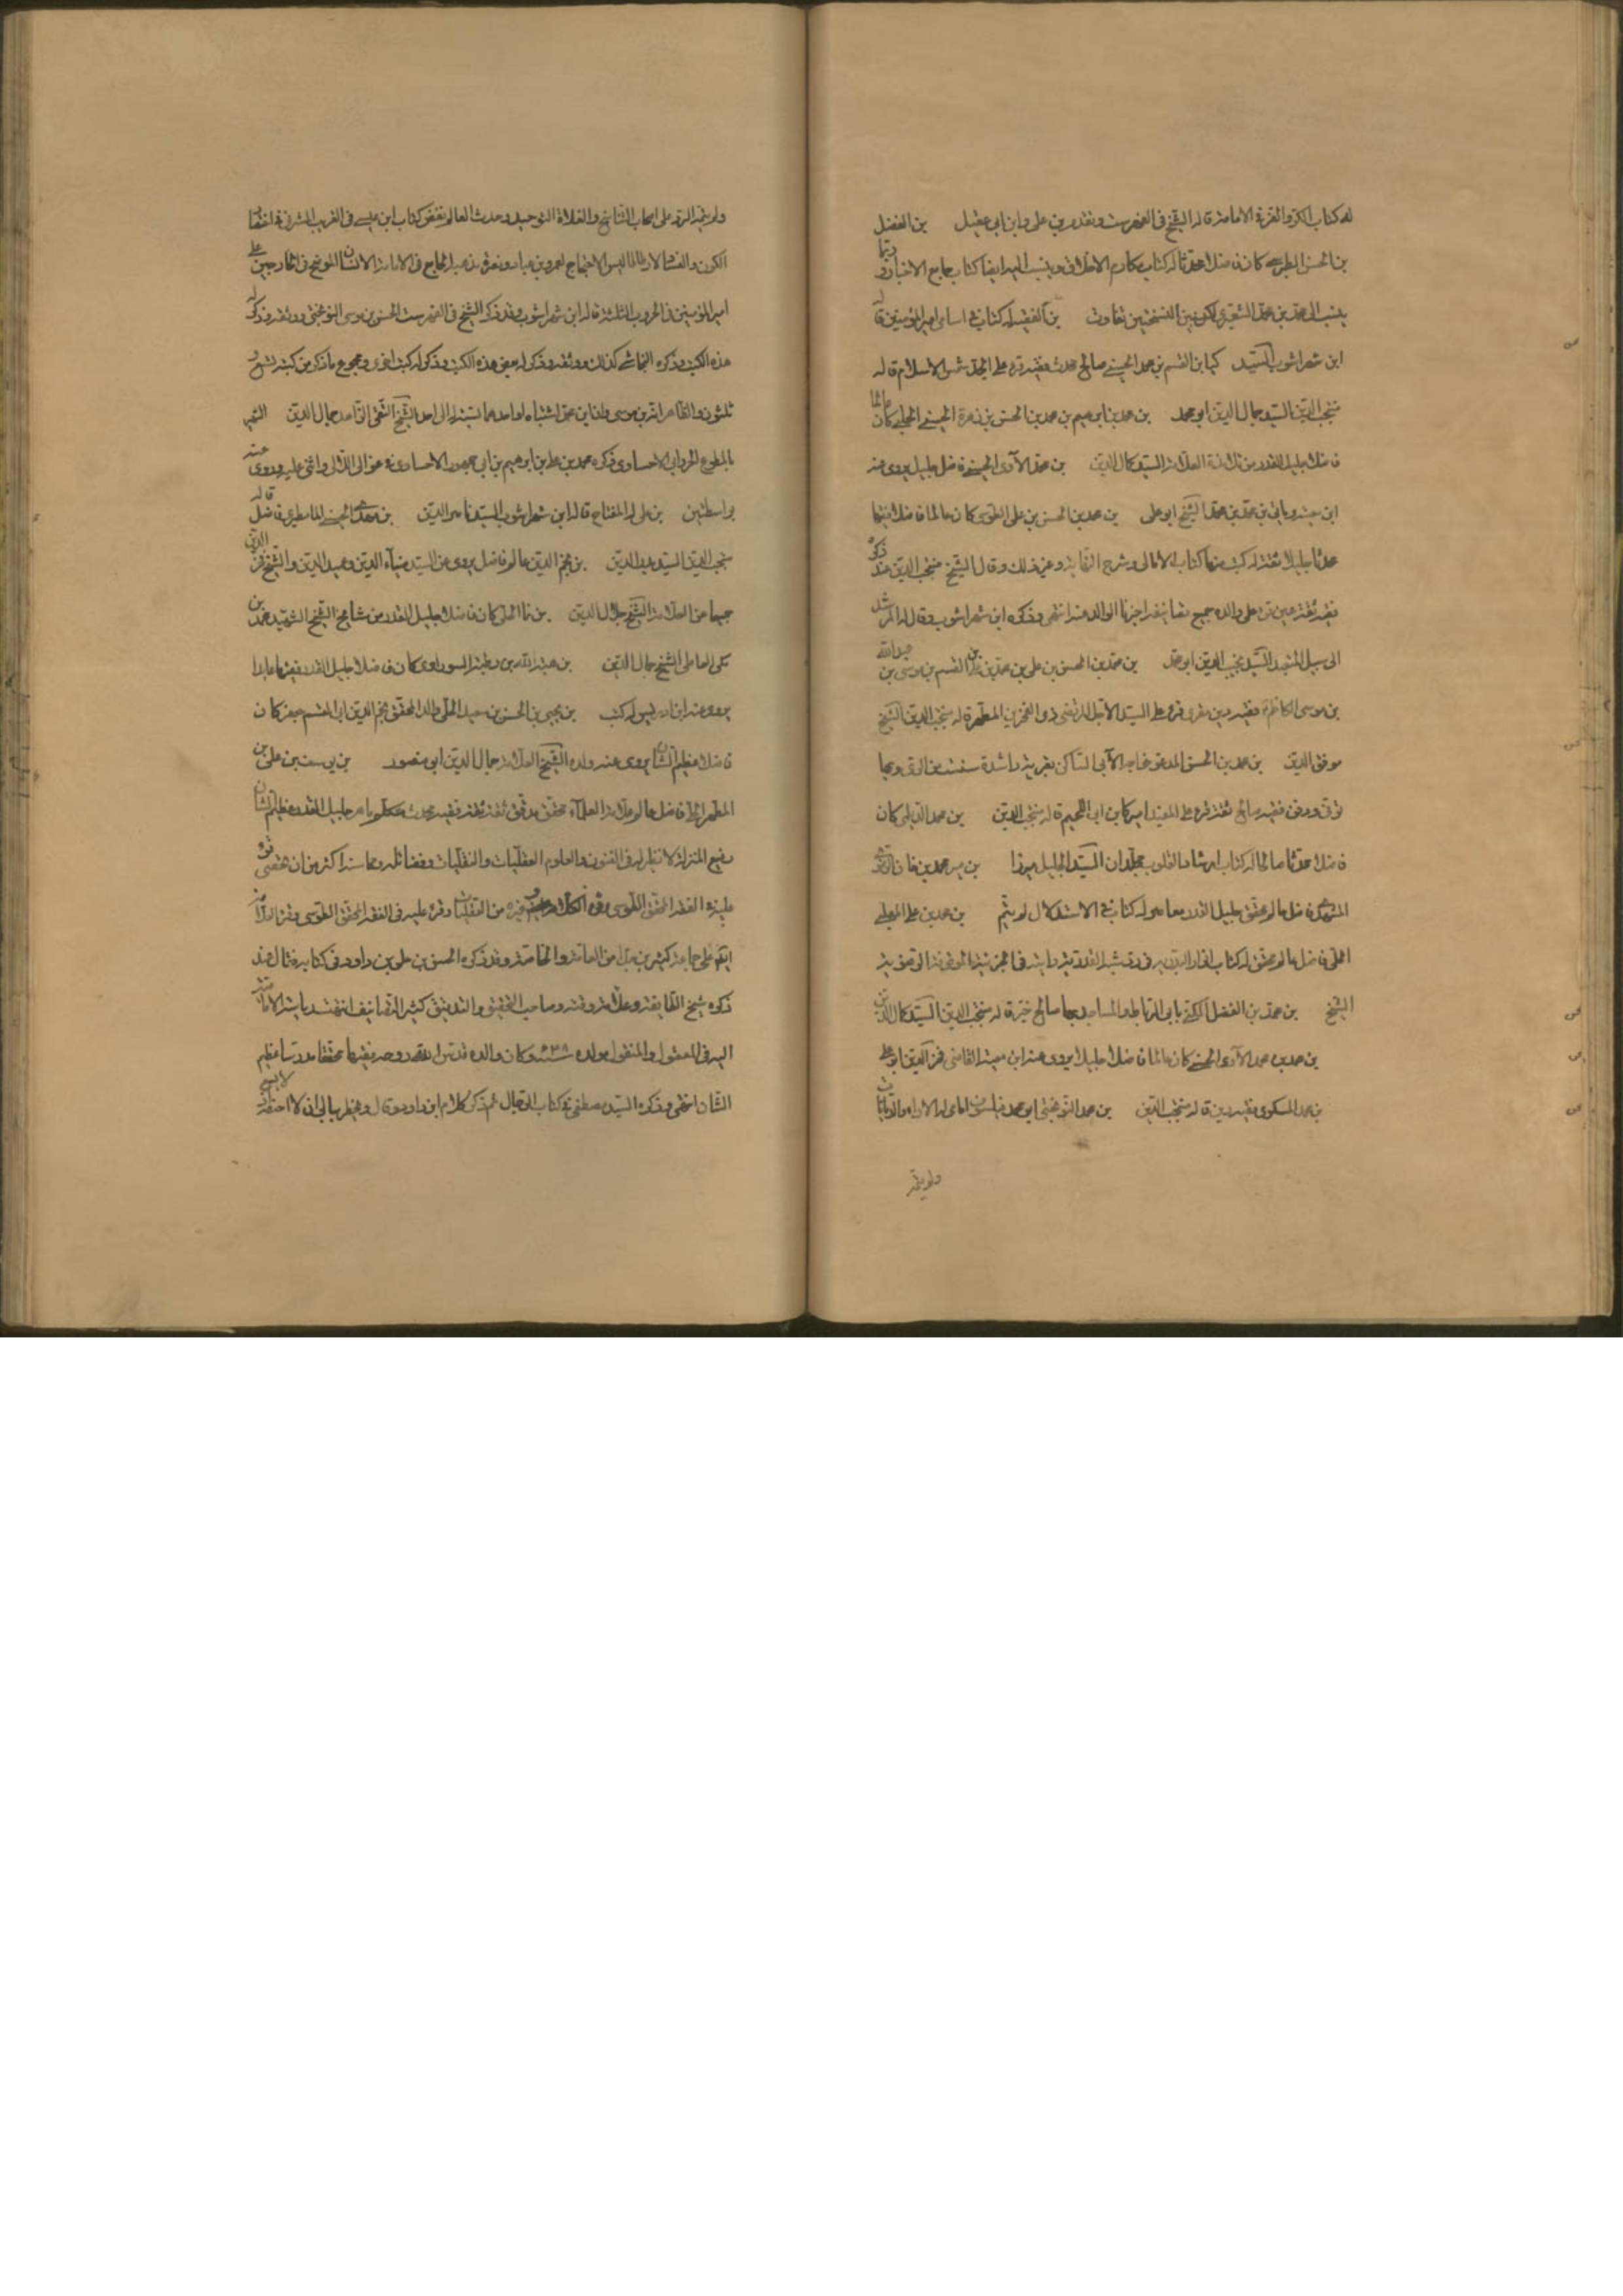 له كتاب الكر والفر في الامامة قاله الشيخ في الفهرست وتقدم بن علي وابن ابي عقيل بن الفضل
بن الحسن الطبرسي كان فاضلا محدثا له كتاب مكارم الاخلاق وينسب اليه ايضا كتاب جامع الاخبار وربما
ينسب الى محمد بن محمد الشعيري لكن بين النسختين تفاوت بن القسم له كتاب في اسامي امير المؤمنين قاله
ابن شهراشوب السيد كيا بن القسم بن محمد الحسني صالح محدث فقيه قرء على الجد شمس الاسلام قاله
منتجب الدين السيد جمال الدين ابو محمد بن محمد بن ابرهيم بن محمد بن الحسن بن زهرة الحسيني الحلبي كان عالما
فاضلا جليل القدر من تلامذة العلامة السيد كمال الدين بن محمد الآوي الحسيني فاضل جليل يروي عنه
ابن معية ويأتي بن محمد بن محمد الشيخ ابو علي بن محمد بن الحسن بن علي الطوسي كان عالما فاضلا فقيها
محدثا جليلا ثقة له كتب منها كتاب الامالي وشرح النهاية وغير ذلك وقال الشيخ منتجب الدين عند ذكره
فقيه ثقة عين قرء على والده جميع تصانيفه اخبرنا الوالد عنه انتهى وذكره ابن شهراشوب وقال له المرشد
الى سبيل المتعبد السيد نجيب الدين ابو محمد بن محمد بن الحسن بن علي بن محمد بن علي بن القسم بن موسى بن عبد الله
بن موسى الكاظم ع فقيه دين مقري قرء على السيد الاجل المرتضى ذي الفخرين المطهر قاله منتجب الدين الشيخ
موفق الدين بن محمد بن الحسن المدعو خواجه الآبي الساكن بقرية راشدة سنست من الري وبها
توفي ودفن فقيه صالح ثقة قرء على المفيد اميركا بن ابي اللجيم قاله منتجب الدين بن محمد الديلمي كان
فاضلا محدثا صالحا له كتاب ارشاد القلوب مجلدان السيد الجليل ميرزا بن مير محمد زمان الرضوي
المشهدي فاضل عالم محقق جليل القدر معاصر له كتاب في الاستدلال لم يتم بن محمد بن علي المهلبي
الحلي فاضل عالم محقق له كتاب الانوار البدرية في رد شبه القدرية رأيته في الخزانة الموقوفة الرضوية
الشيخ بن محمد بن الفضل المسكني بابي الرباط والمساجد بها صالح خير قاله منتجب الدين السيد كمال الدين
بن محمد بن محمد الآوي الحسيني كان عالما فاضلا جليلا يروي عنه ابن معية القاضي فخر الدين ابو علي
بن محمد السكوي فقيه دين قاله منتجب الدين بن محمد النوبختي ابو محمد فيلسوف امامي له الاراء والديانات
ولم يتمه
ولم يتمه الرد على اصحاب التناسخ والغلاة التوحيد وحدث العالم نقض كتاب ابن عيسى في الغريب المشرقي اختصار
الكون والفساد لارسطاطاليس الاحتجاج لعمرو بن عباد ونصرة مذهبه الجامع في الامامة الانسان الموضح في حروب
امير المؤمنين في الحروب الثلثة قاله ابن شهراشوب وقد ذكر الشيخ في الفهرست الحسن بن موسى النوبختي ووثقه وذكر له
هذه الكتب وذكره النجاشي كذلك ووثقه وذكر له بعض هذه الكتب وذكر له كتبا اخرى ومجموع ما ذكر من كتبه تسع و
ثلثون والظاهر انه بن موسى وان ابن محمد اشتباه او احدهما نسبة الى احد الشيخ التقي الزاهد جمال الدين الشهير
بالمطوع الجرواني الاحساوي ذكره محمد بن علي بن ابرهيم بن ابي جمهور الاحساوي في عوالي اللئالي واثنى عليه وروى عنه
بواسطتين بن علي له المفتاح قاله ابن شهراشوب السيد ناصر الدين بن مهدي الحسيني المامطيري فاضل قاله
منتجب الدين السيد بدر الدين بن نجم الدين عالم فاضل يروي عن السيد ضياء الدين وعميد الدين والشيخ فخر الدين
جميعا عن العلامة الشيخ جلال الدين بن نما الحلي كان فاضلا جليل القدر من مشايخ الشيخ الشهيد محمد بن
مكي العاملي الشيخ جمال الدين بن هبة الله بن رطبة السوراوي كان فاضلا جليل القدر فقيها عابدا
يروي عنه ابن ادريس له كتب بن يحيى بن الحسن بن سعيد الحلي والد المحقق نجم الدين ابي القسم جعفر كان
فاضلا عظيم الشان يروي عنه ولده الشيخ العلامة جمال الدين ابو منصور بن يوسف بن علي بن
المطهر الحلي فاضل عالم علامة العلماء محقق مدقق ثقة ثقة فقيه محدث متكلم ماهر جليل القدر عظيم الشان
رفيع المنزلة لا نظير له في الفنون والعلوم العقليات والنقليات وفضائله ومحاسنه اكثر من ان تحصى قرء
على في الفقه المحقق الطوسي في الكلام وغيره من العقليات وقرء عليه في الفقه المحقق الطوسي وقرء العلامة
ايضا على جماعة كثيرين جدا من العامة والخاصة وقد ذكره الحسن بن علي بن داود في كتابه فقال عند
ذكره شيخ الطايفة وعلامة وقته وصاحب التحقيق والتدقيق كثير التصانيف انتهت رياسة الامامية
اليه في المعقول والمنقول مولده سنة ٦٤٨ وكان والده قدس الله روحه فقيها محققا مدرسا عظيم
الشان انتهى وذكره السيد مصطفى في كتاب الرجال ثم ذكر كلام ابن داود وقال ويخطر ببالي ان لا اصفه